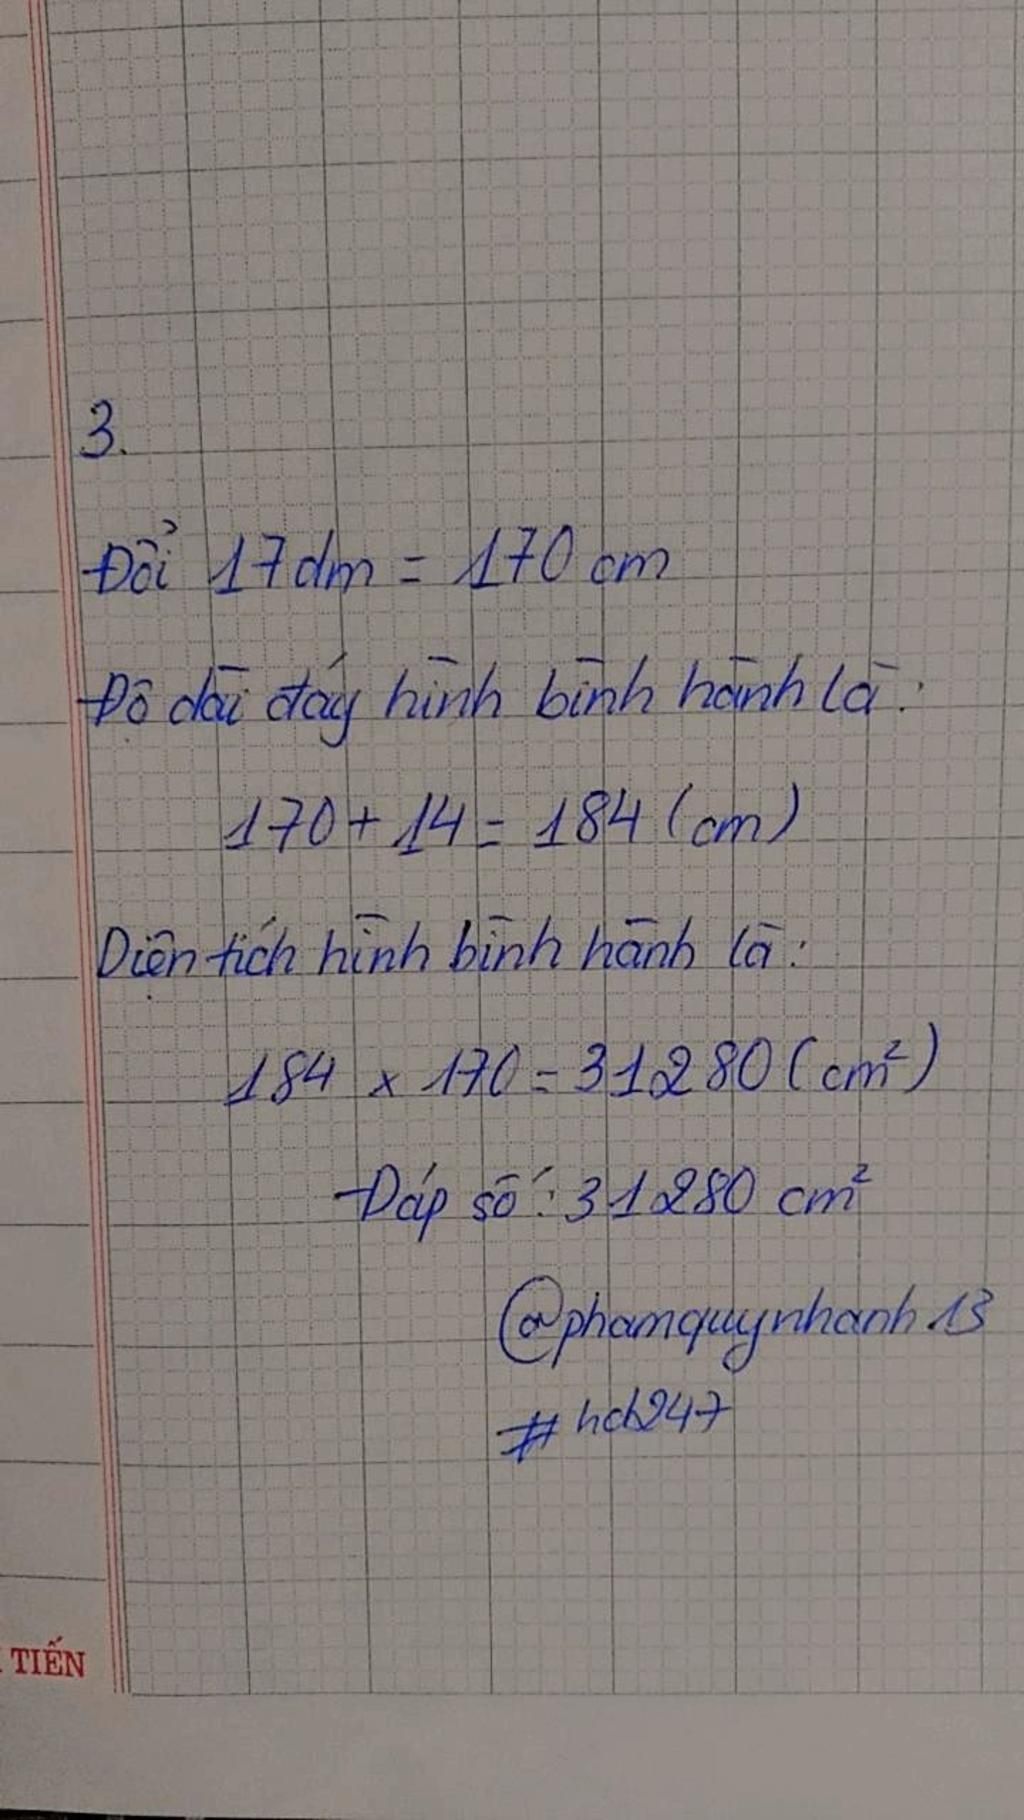 3.
Đổi 17dm = 170 cm
Độ dài đáy hình bình hành là:
170 + 14 = 184 (cm)
Diện tích hình bình hành là:
184 x 170 = 31280 (cm²)
Đáp số: 31280 cm²
@phamquynhanh13
#hch247
TIẾN